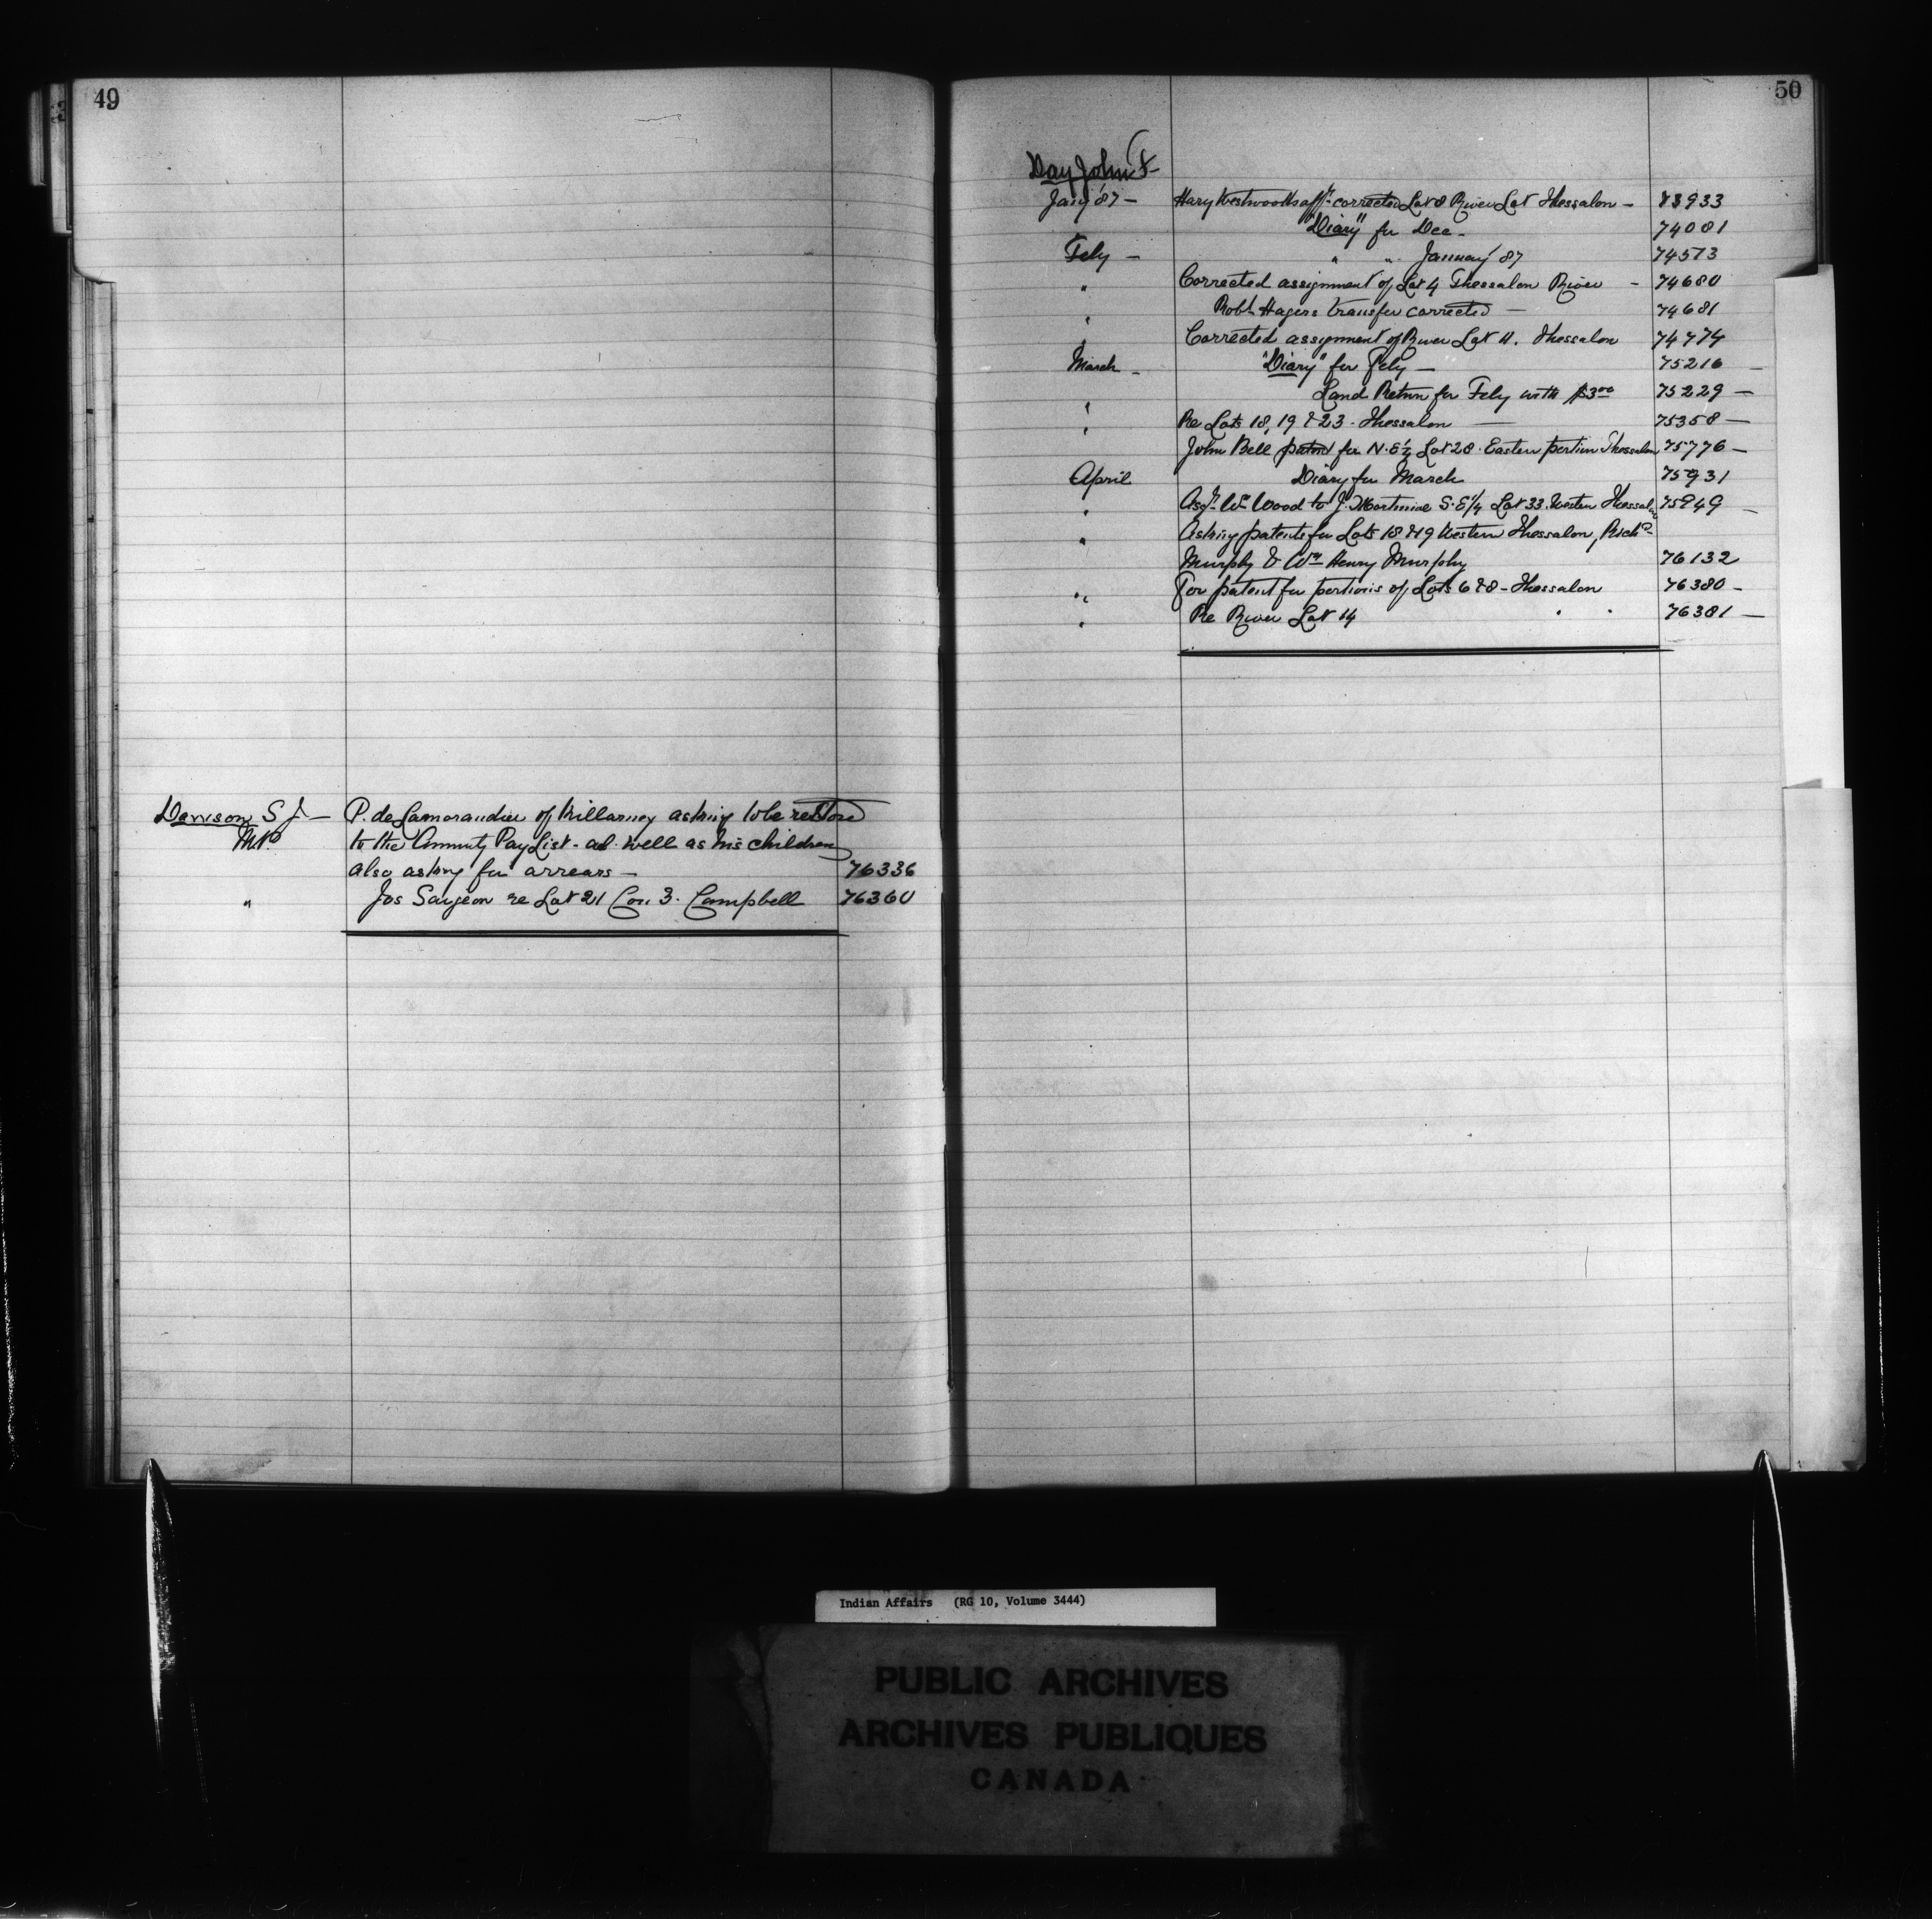 49
Dawson S J - P. de Lamorandiere of Killarney asking to be restored
M.P. to the Annuity Pay List - as well as his children
also asking for arrears - 76336
" Jos Sargeon re Lot 21 Con. 3. Campbell 76360
50
Day John F
Jany '87 - Hary Westwood's afft. corrected Lot 8 River Lot Thessalon - 73933
"Diary" for Dec - 74081
Feby - " " January '87 74513
" Corrected assignment of Lot 4 Thessalon River - 74680
" Robt Hagers transfer corrected - 74681
" Corrected assignment of River Lot 11. Thessalon 74774
March - "Diary" for Feby - 75216 -
" Land Return for Feby with $3.00 75229 -
" Re Lots 18, 19 & 23 - Thessalon - 75358 -
John Bell patent for N.E ½ Lot 28. Eastern portion Thessalon 75776 -
April Diary for March 75931
" Asgt. Wm Wood to J. Mortimine S.E ¼ Lot 33. Western Thessalon 75949 -
" Asking patents for Lots 18 & 19 Western Thessalon, Richd
Murphy & Wm Henry Murphy 76132
" For patent for portions of Lots 6 & 8 - Thessalon 76380 -
" Re River Lot 14 " " 76381 -
Indian Affairs (RG 10, Volume 3444)
PUBLIC ARCHIVES
ARCHIVES PUBLIQUES
CANADA